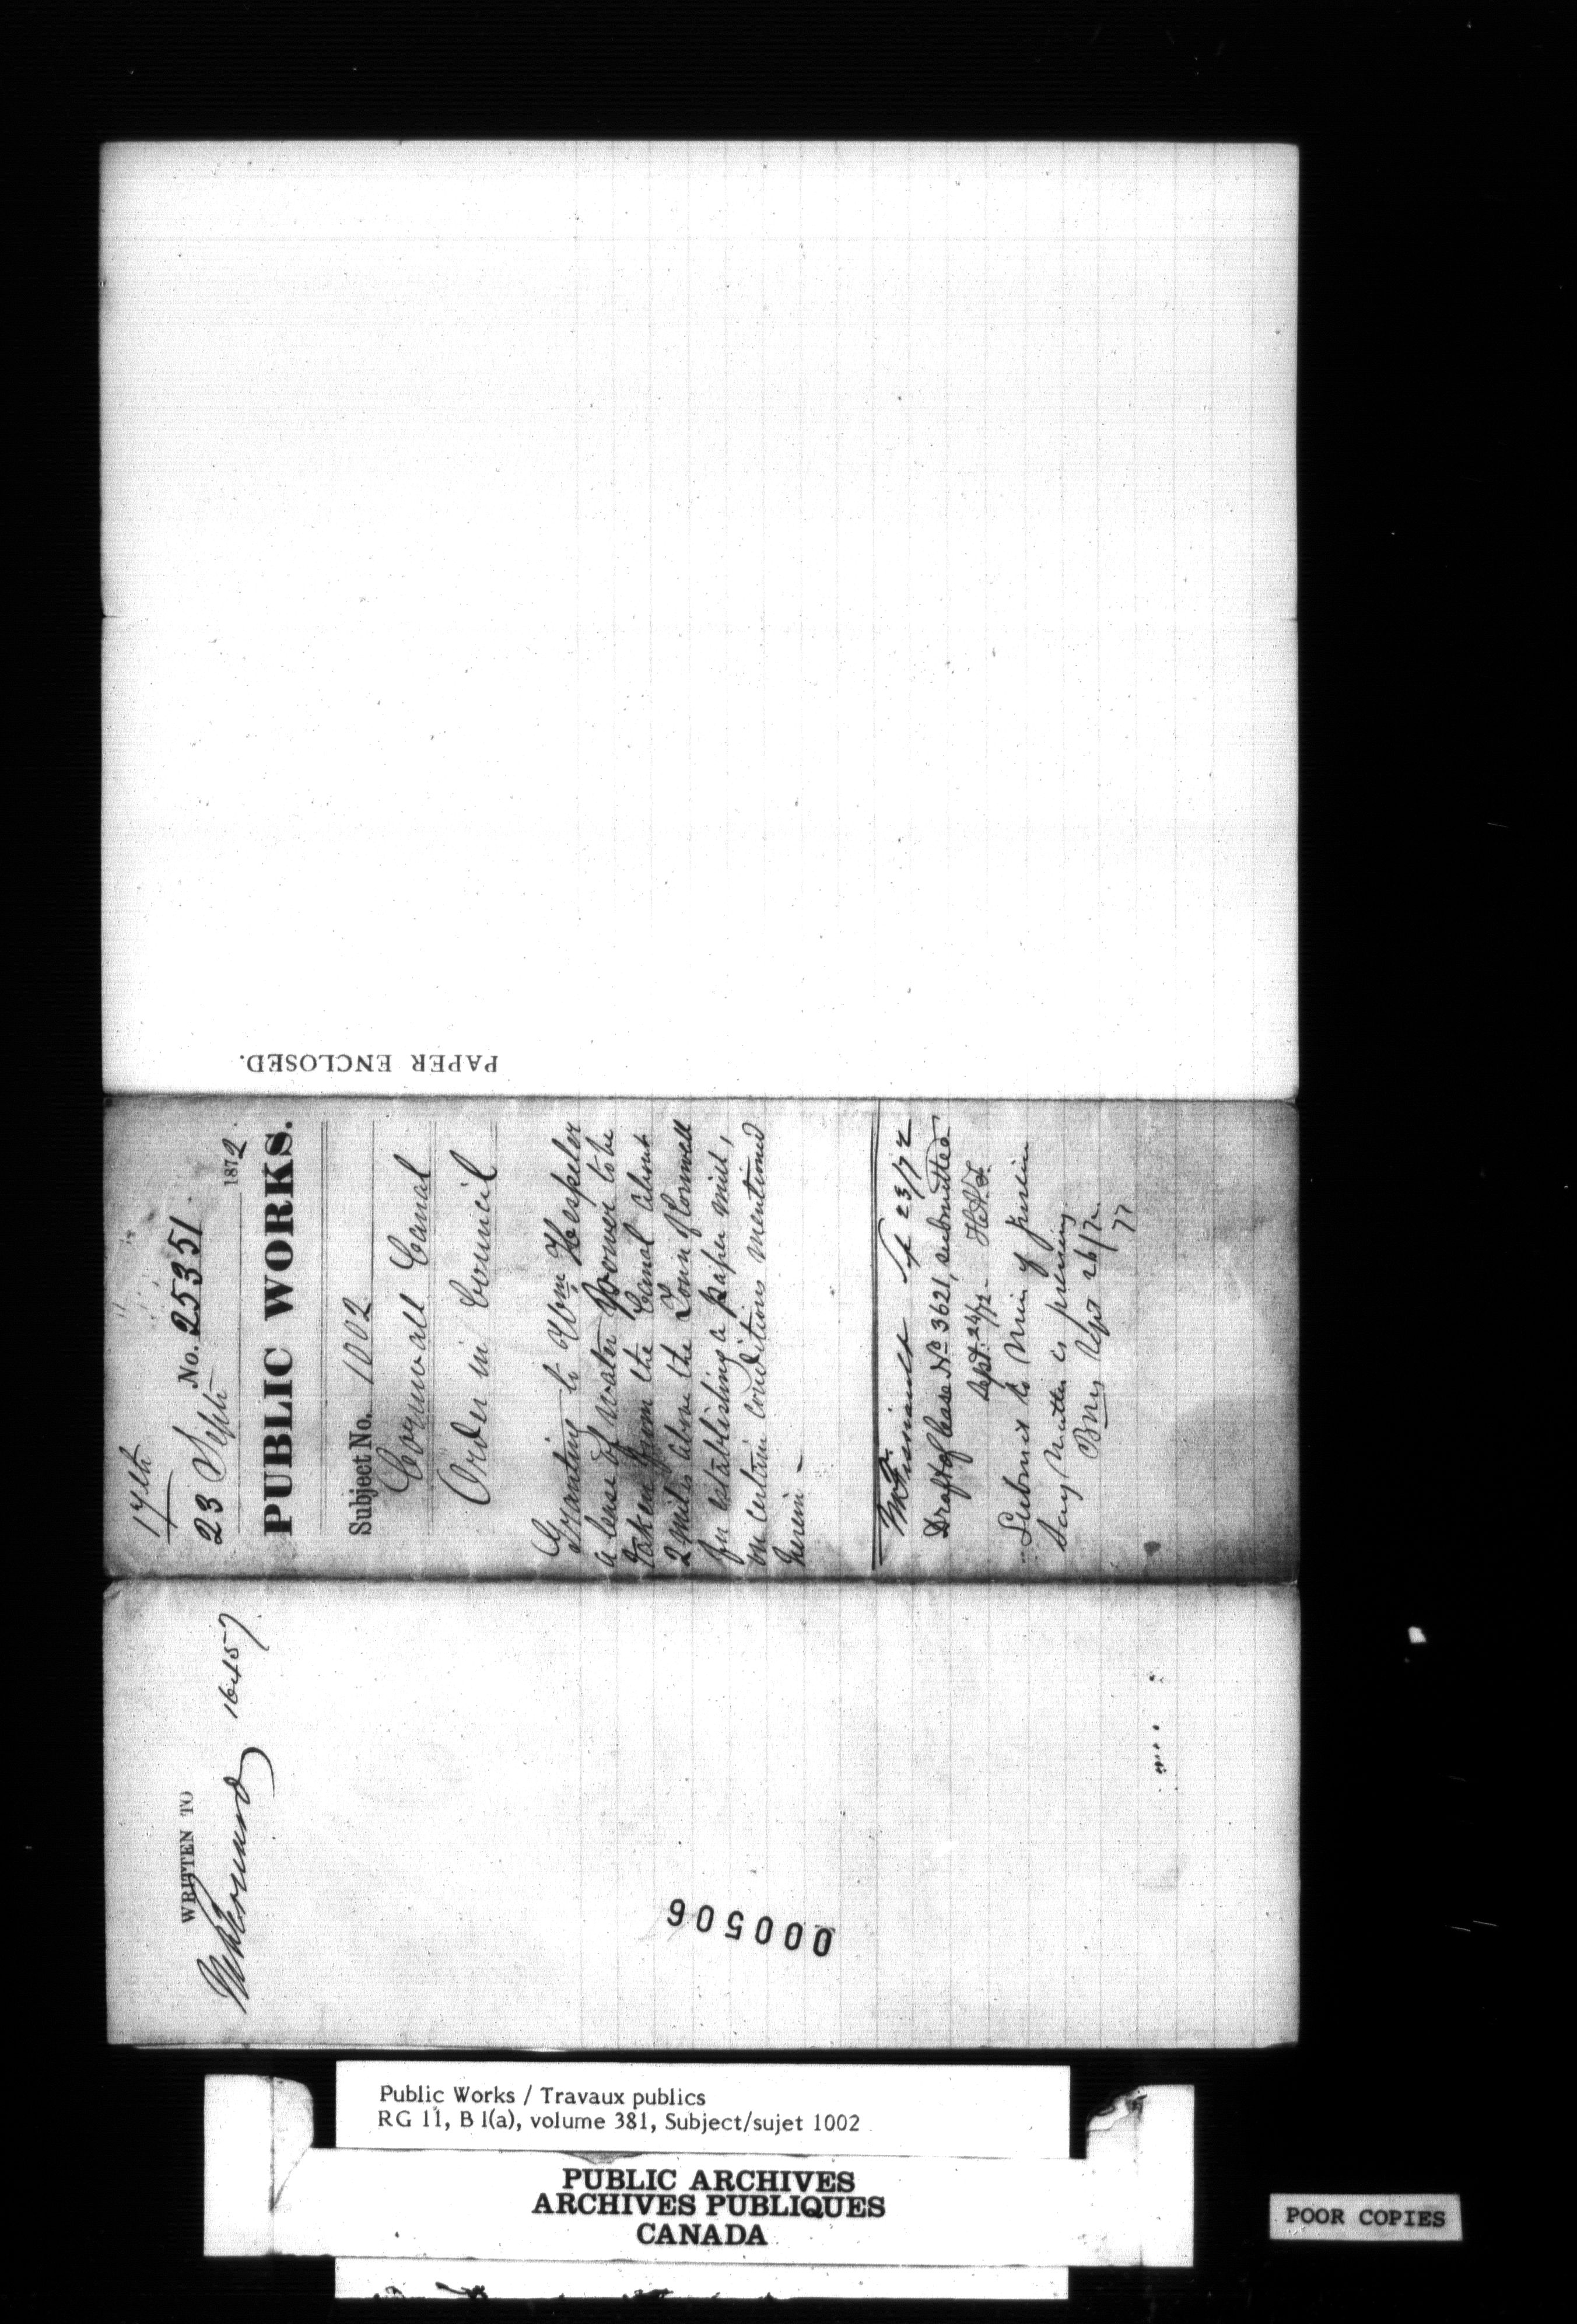 PAPER ENCLOSED.
17th
23 Sept No. 25351
1872.
PUBLIC WORKS.
Subject No. 1002
Cornwall Canal
Order in Council
Granting to Wm Hespeler
a lease of water power to be
taken from the Canal about
2 miles above the Town of Cornwall
for establishing a paper mill,
on certain conditions mentioned
herein —
Sept 23/72
Draft of lease No 3621, submitted
Sept. 24/72
Submit to Min of Justice
Say Matter is pressing
Sept 26/72
WRITTEN TO
16457
000506
Public Works / Travaux publics
RG 11, B 1(a), volume 381, Subject/sujet 1002
PUBLIC ARCHIVES
ARCHIVES PUBLIQUES
CANADA
POOR COPIES